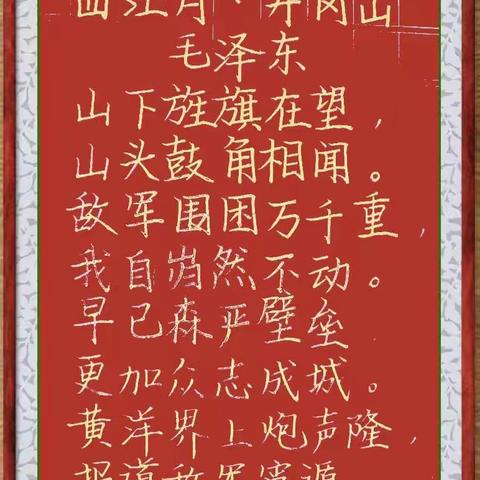 西江月·井冈山
毛泽东
山下旌旗在望，
山头鼓角相闻。
敌军围困万千重，
我自岿然不动。
早已森严壁垒
更加众志成城。
黄洋界上炮声隆，
报道敌军宵